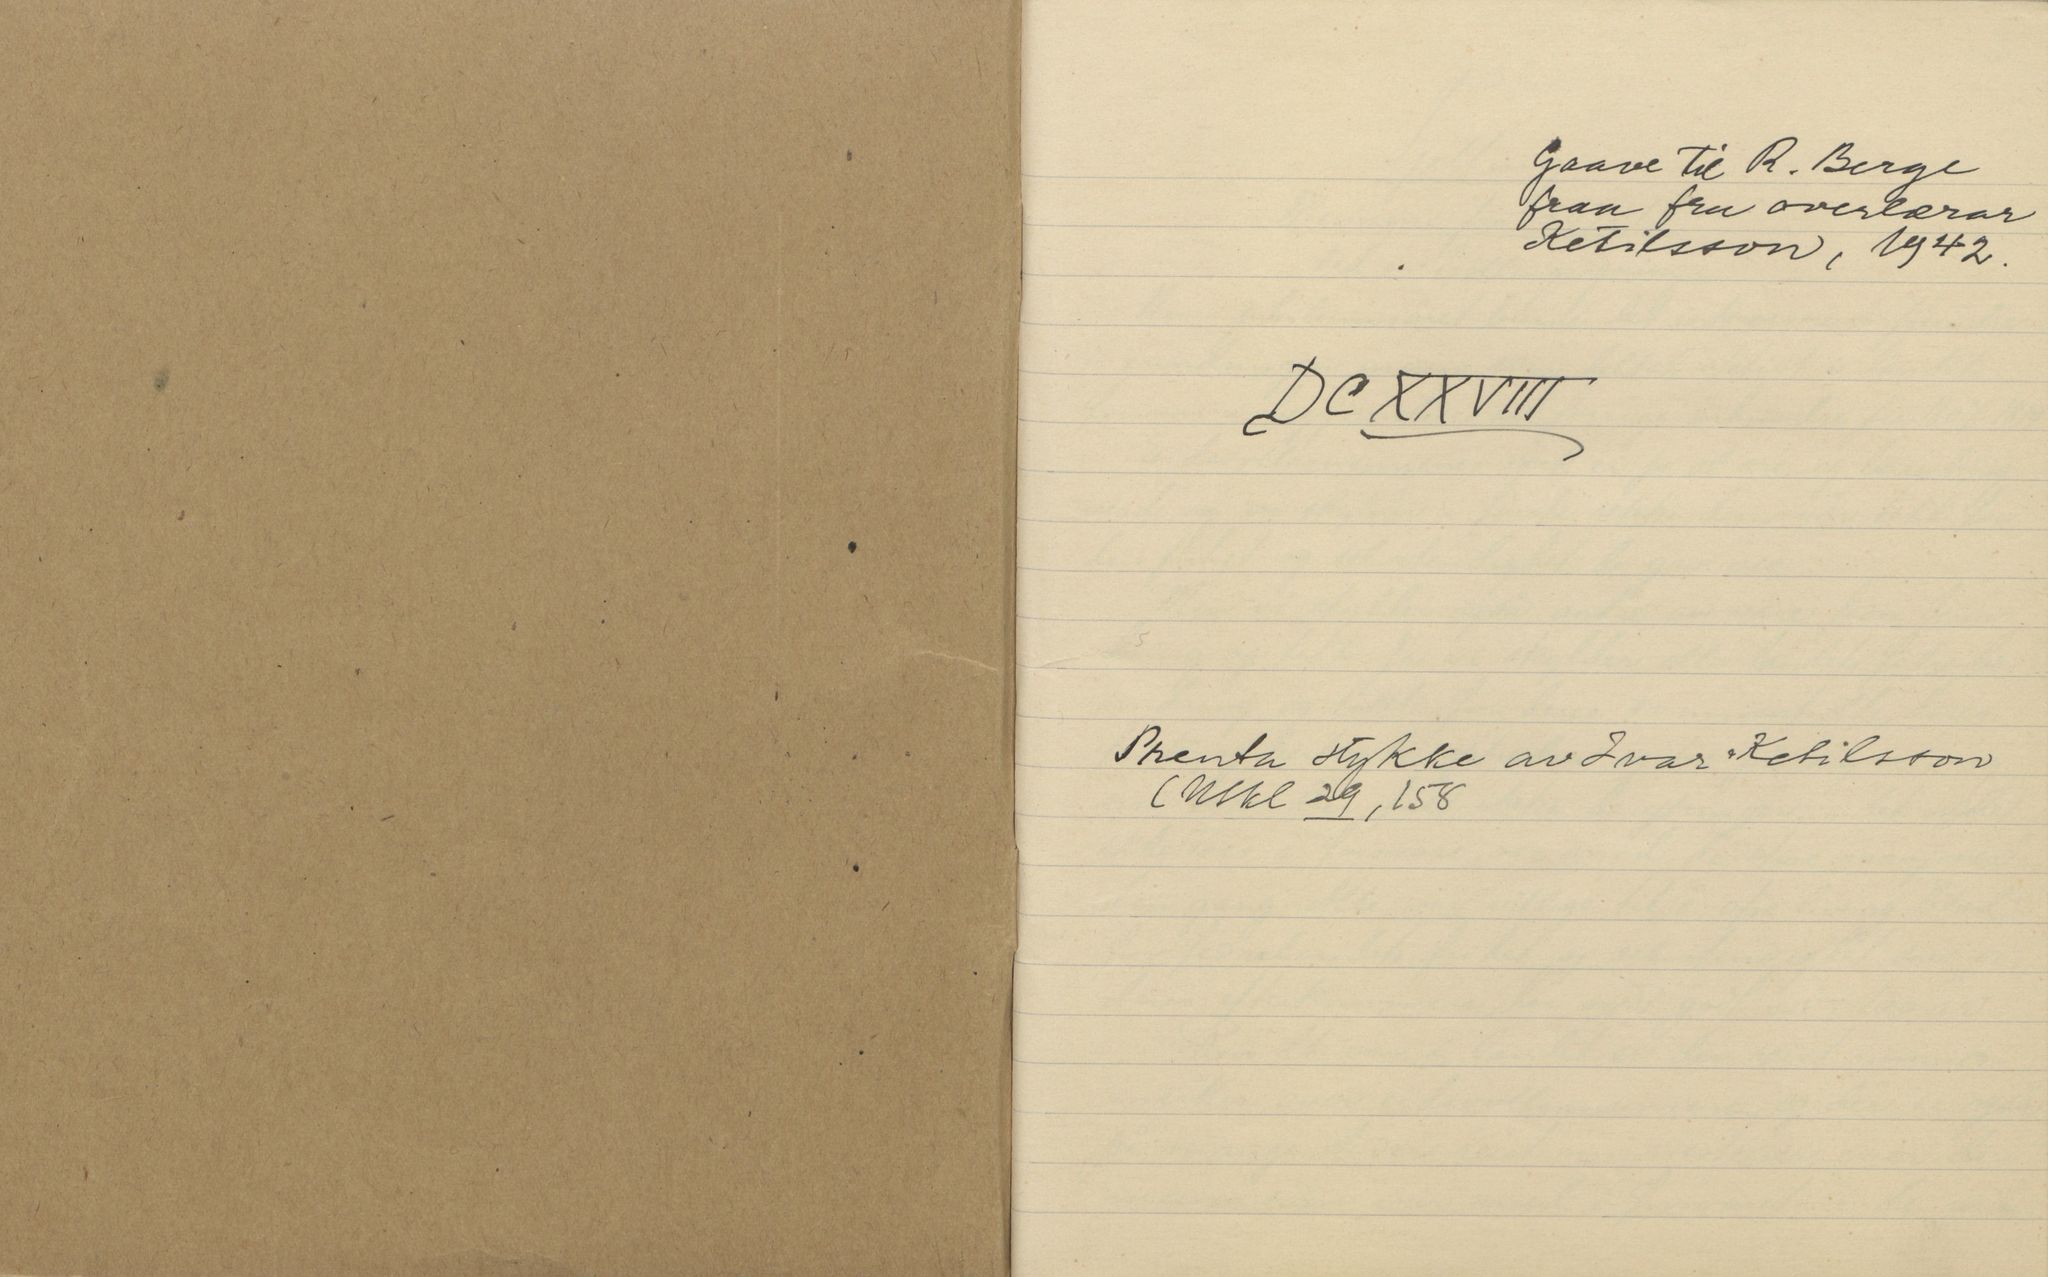 Gaave til R. Berge
fraa fru overlærar
Ketilsson, 1942.
DCXXVIII
Prenta stykke av Ivar Ketilsson
29, 158